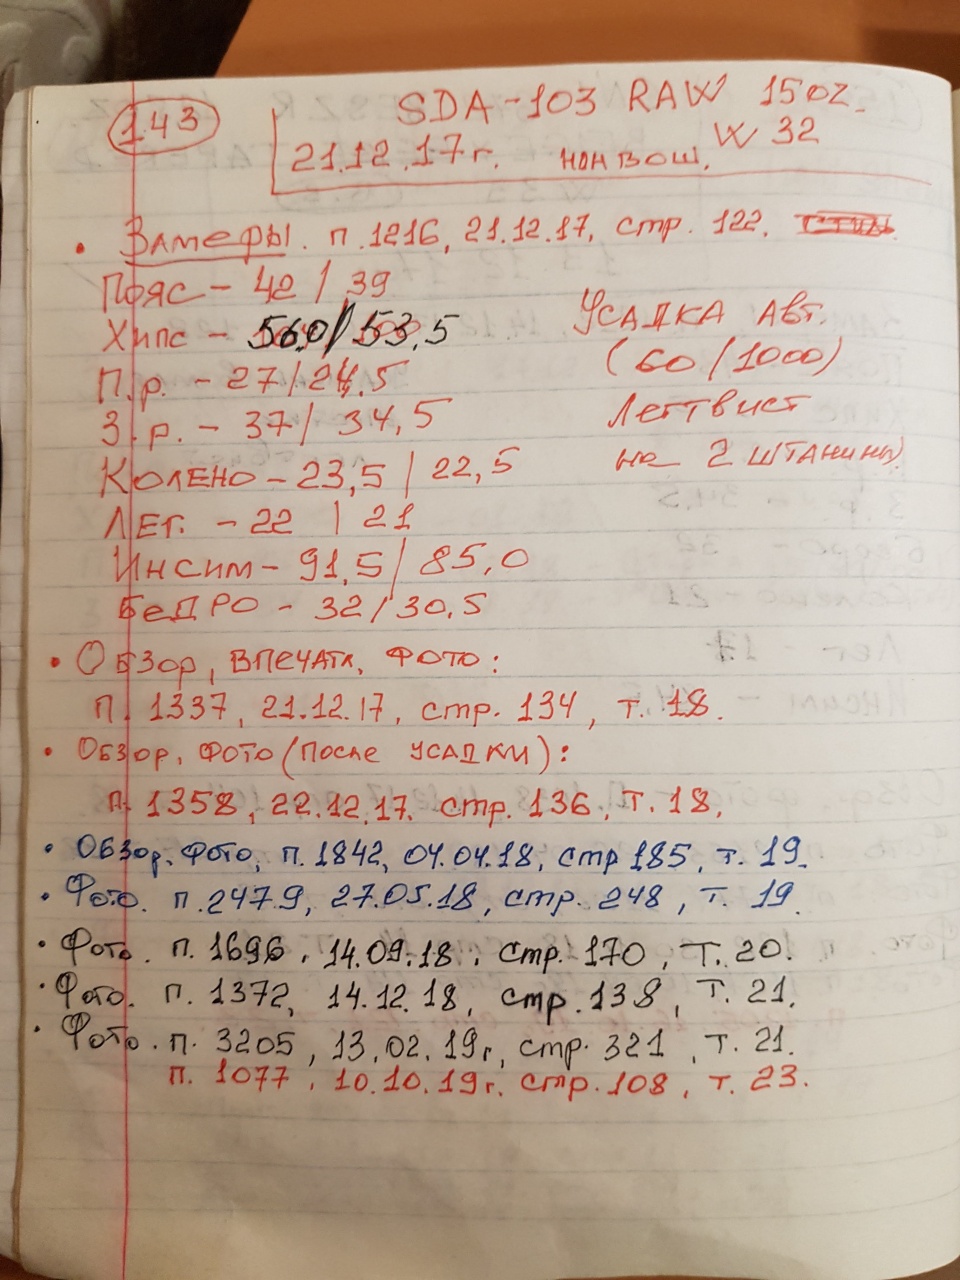 143
SDA-103 RAW 15OZ.
W 32
21.12.17г. нон вош.
• Замеры. п.1216, 21.12.17, стр. 122.
Пояс - 42 / 39
Хипс - 56.0 / 53,5
П.р. - 27 / 24,5
З.р. - 37 / 34,5
Колено - 23,5 / 22,5
Лег. - 22 / 21
Инсим - 91,5 / 85,0
Бедро - 32 / 30,5
Усадка авт.
(60/1000)
Леттвист
на 2 штанины)
• Обзор, впечатл, фото:
п. 1337, 21.12.17, стр. 134, т. 18.
• Обзор, фото (после усадки):
п. 1358, 22.12.17. стр. 136, т. 18,
• Обзор. Фото, п. 1842, 04.04.18, стр 185, т. 19.
• Фото. п. 2479, 27.05.18, стр. 248, т. 19.
• Фото. п. 1696, 14.09.18, стр. 170, т. 20.
• Фото. п. 1372, 14.12.18, стр. 138, т. 21.
• Фото. п. 3205, 13.02.19г, стр. 321, т. 21.
п. 1077, 10.10.19г. стр. 108, т. 23.